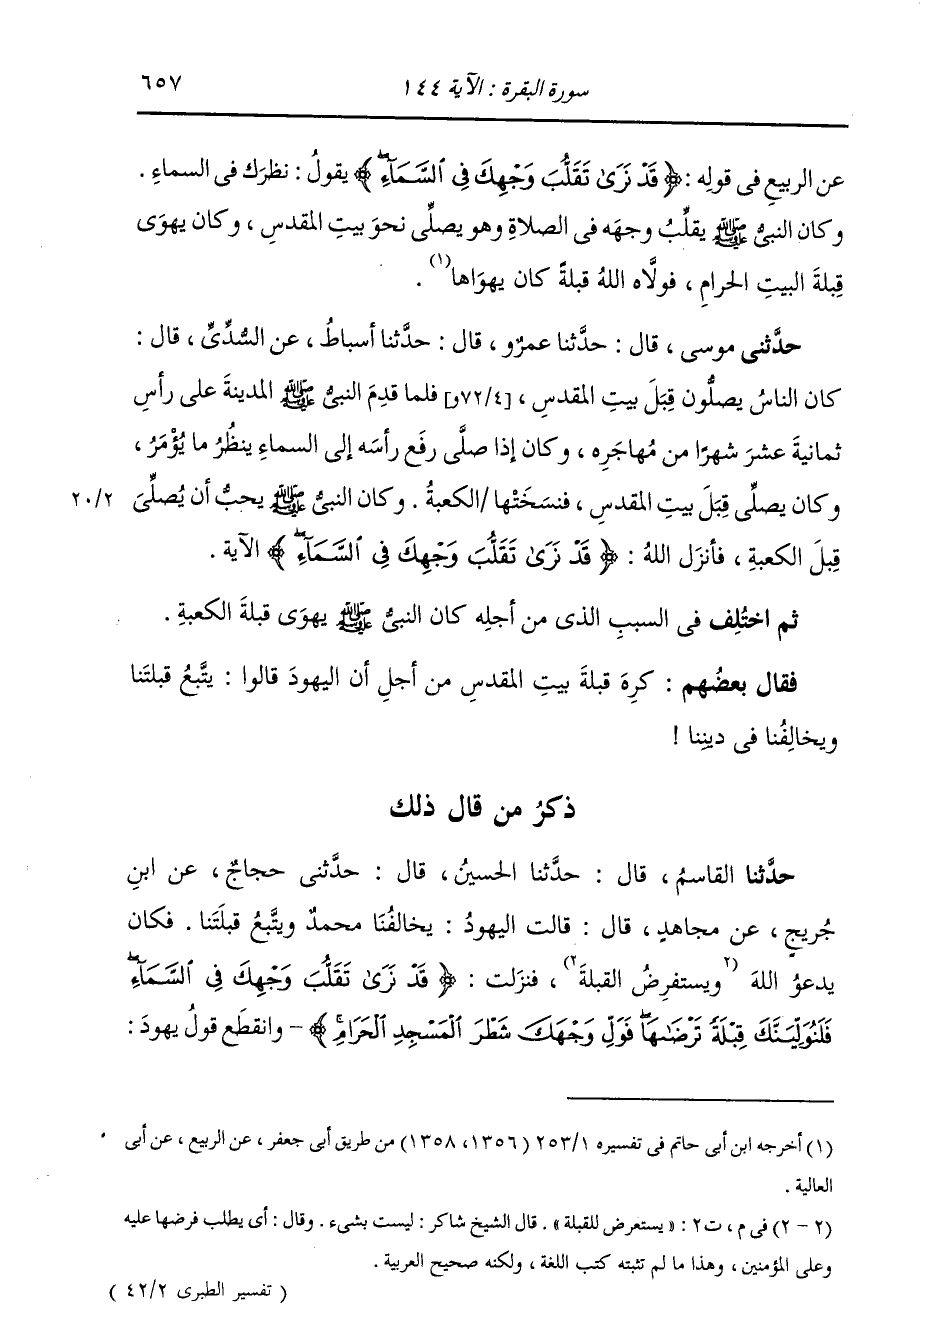 سورة البقرة : الآية ١٤٤
٦٥٧
عن الربيعِ فى قولِه : ﴿ قَدْ نَرَىٰ تَقَلُّبَ وَجْهِكَ فِى ٱلسَّمَآءِۖ ﴾ يقولُ : نظرَك فى السماءِ .
وكان النبىُّ ﷺ يقلِّبُ وجهَه فى الصلاةِ وهو يصلِّى نحوَ بيتِ المقدسِ ، وكان يهوَى
قِبلةَ البيتِ الحرامِ ، فولَّاه اللهُ قبلةً كان يهوَاها(١) .
حدَّثنى موسى ، قال : حدَّثنا عمرٌو ، قال : حدَّثنا أسباطُ ، عن السُّدِّىِّ ، قال :
كان الناسُ يصلُّون قِبَلَ بيتِ المقدسِ ، [٧٢/٤و] فلما قدِمَ النبىُّ ﷺ المدينةَ على رأسِ
ثمانيةَ عشرَ شهرًا من مُهاجَرِه ، وكان إذا صلَّى رفَع رأسَه إلى السماءِ ينظُرُ ما يُؤْمَرُ ،
وكان يصلِّى قِبَلَ بيتِ المقدسِ ، فنسَخَتْها /الكعبةُ . وكان النبىُّ ﷺ يحبُّ أن يُصلِّىَ
٢٠/٢
قِبلَ الكعبةِ ، فأنزَل اللهُ : ﴿ قَدْ نَرَىٰ تَقَلُّبَ وَجْهِكَ فِى ٱلسَّمَآءِۖ ﴾ الآية .
ثم اختُلِف فى السببِ الذى من أجلِه كان النبىُّ ﷺ يهوَى قبلةَ الكعبةِ .
فقال بعضُهم : كرِهَ قبلةَ بيتِ المقدسِ من أجلِ أن اليهودَ قالوا : يتَّبعُ قبلتَنا
ويخالِفُنا فى دينِنا !
ذكرُ من قال ذلك
حدَّثنا القاسمُ ، قال : حدَّثنا الحسينُ ، قال : حدَّثنى حجاجٌ ، عن ابنِ
جُريجٍ ، عن مجاهدٍ ، قال : قالت اليهودُ : يخالفُنَا محمدٌ ويتَّبعُ قبلَتَنا . فكان
يدعوُ اللهَ (٢ويستفرِضُ القبلةَ٢) ، فنزَلت : ﴿ قَدْ نَرَىٰ تَقَلُّبَ وَجْهِكَ فِى ٱلسَّمَآءِۖ
فَلَنُوَلِّيَنَّكَ قِبْلَةً تَرْضَىٰهَاۚ فَوَلِّ وَجْهَكَ شَطْرَ ٱلْمَسْجِدِ ٱلْحَرَامِۚ ﴾ - وانقطَع قولُ يهودَ :
(١) أخرجه ابن أبى حاتم فى تفسيره ٢٥٣/١ (١٣٥٦، ١٣٥٨) من طريق أبى جعفر ، عن الربيع ، عن أبى
العالية .
(٢ - ٢) فى م ، ت٢ : « يستعرض للقبلة » . قال الشيخ شاكر : ليست بشىء . وقال : أى يطلب فرضها عليه
وعلى المؤمنين ، وهذا ما لم تثبته كتب اللغة ، ولكنه صحيح العربية .
( تفسير الطبرى ٤٢/٢ )